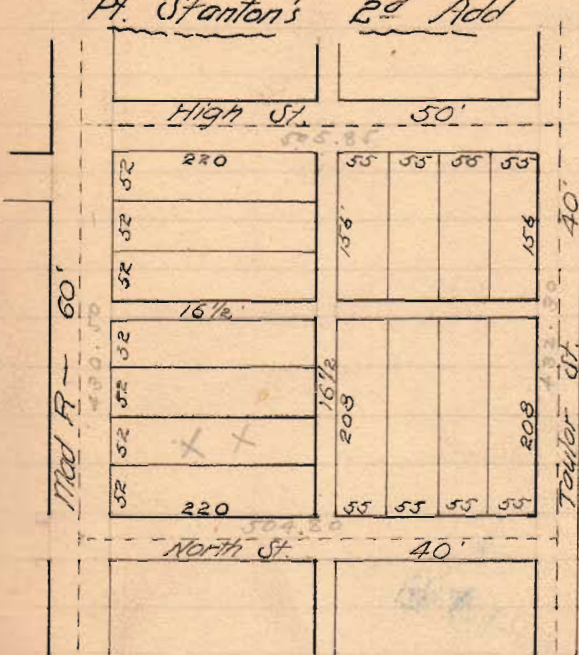 Pt. Stanton's 2d Add
High St. 50'
505.85
220
55 55 55 55
52
52
52
156
156
40'
Mad R — 60'
430.50
16 1/2
52
52
52
52
16 1/2
208
208
432.30
Taylor St.
X X
220
55 55 55 55
504.80
North St. 40'